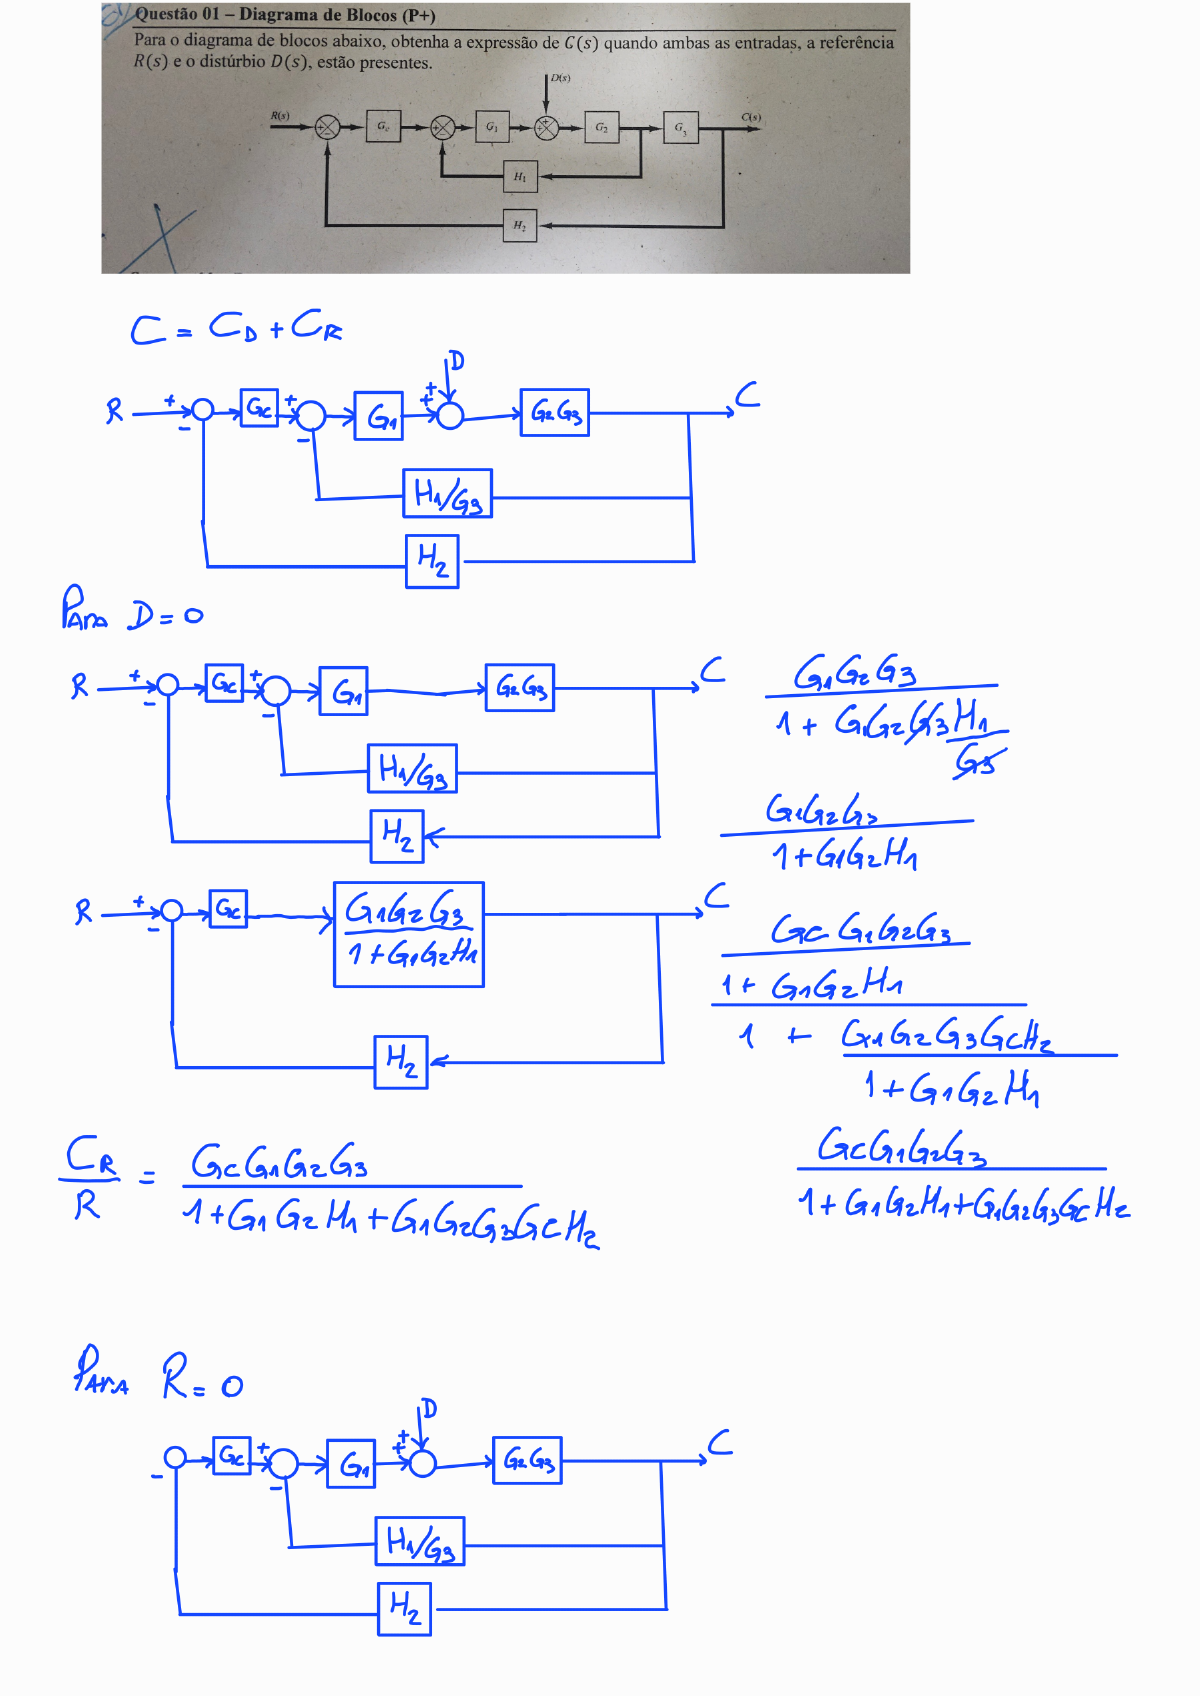 Questão 01 – Diagrama de Blocos (P+)
Para o diagrama de blocos abaixo, obtenha a expressão de C(s) quando ambas as entradas, a referência
R(s) e o distúrbio D(s), estão presentes.
D(s)
R(s) G_c G_1 G_2 G_3 C(s)
H_1
H_2
C = C_D + C_R
D
R + - Gc + - G1 + + G2G3 C
H1/G3
H2
Para D=0
R + - Gc + - G1 G2G3 C
H1/G3
H2
G1G2G3
1 + G1G2G3 H1
G3
G1G2G3
1+G1G2H1
R + - Gc G1G2G3 C
1+G1G2H1
H2
Gc G1G2G3
1 + G1G2H1
1 + G1G2G3GcH2
1+G1G2H1
C_R = GcG1G2G3
R 1+G1G2H1+G1G2G3GcH2
GcG1G2G3
1+G1G2H1+G1G2G3GcH2
Para R=0
D
- Gc + - G1 + + G2G3 C
H1/G3
H2